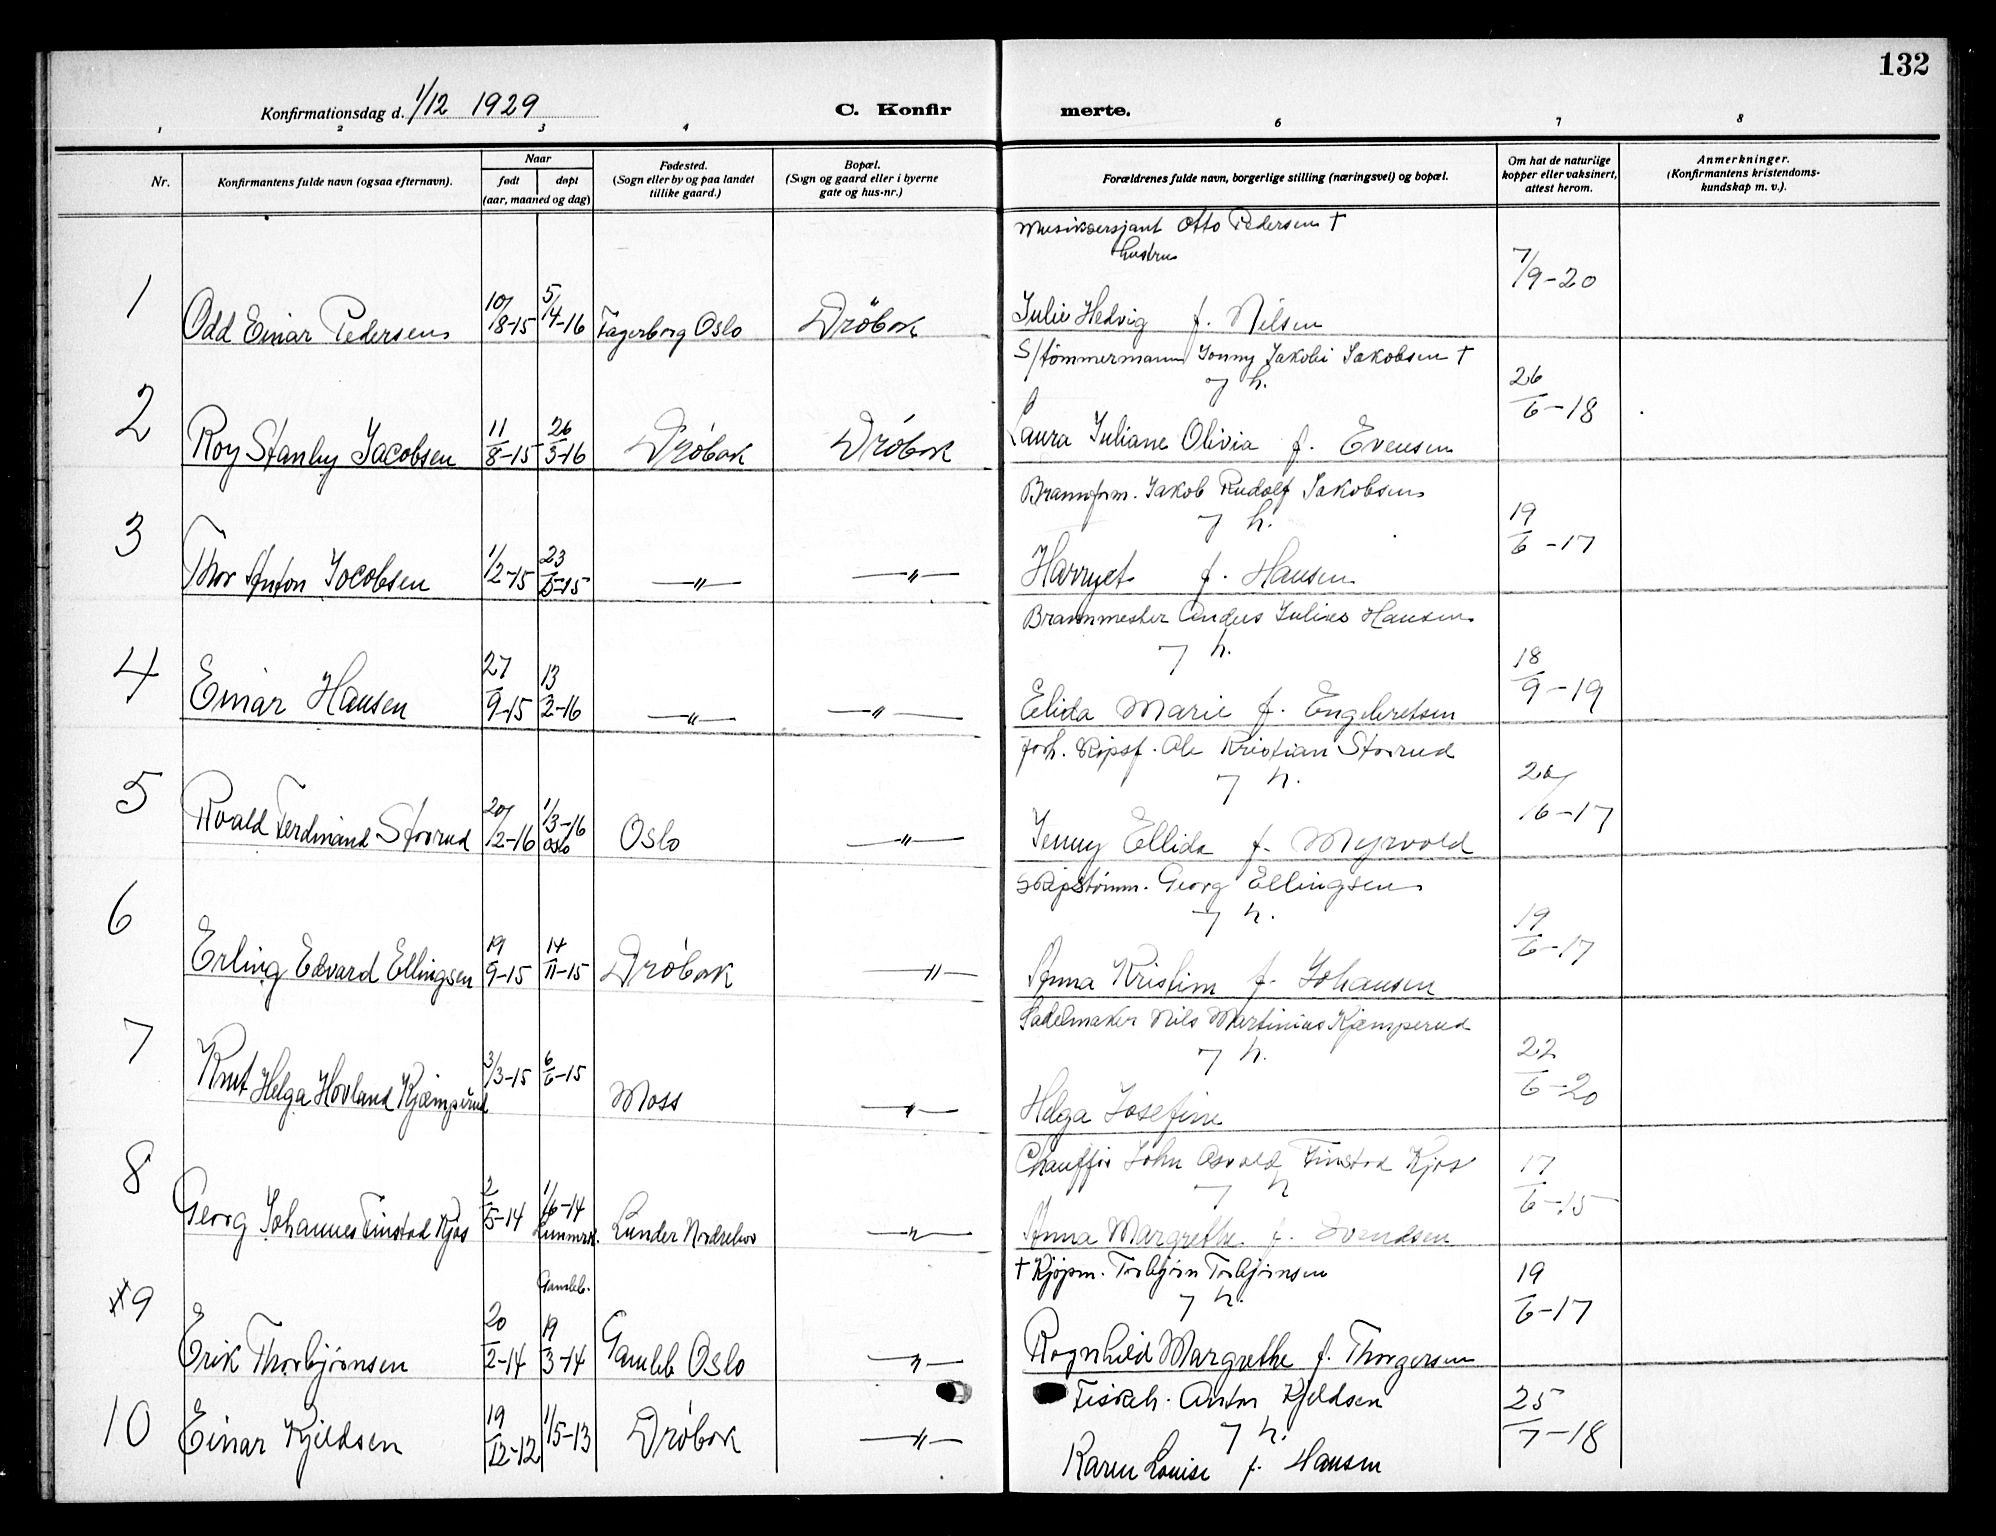 132
Konfirmationsdag d. 1/12 1929
C. Konfir merte.
1 2 3 4 6 7 8
Nr.
Konfirmantens fulde navn (ogsaa efternavn).
Naar
født døpt
(aar, maaned og dag)
Fødested.
(Sogn eller by og paa landet
tillike gaard.)
Bopæl.
(Sogn og gaard eller i byerne
gate og hus-nr.)
Forældrenes fulde navn, borgerlige stilling (næringsvei) og bopæl.
Om hat de naturlige
kopper eller vaksinert,
attest herom.
Anmerkninger.
(Konfirmantens kristendoms-
kundskap m. v.).
Musiksersjant Otto Pedersen †
hustru
1 Odd Einar Pedersen 10/8-15 5/4-16 Fagerborg Oslo Drøbak Julie Hedvig f. Nilsen 7/9-20
S/tømmermann Jonny Jakobi Jakobsen †
7 h.
2 Roy Stanley Jacobsen 11/8-15 26/3-16 Drøbak Drøbak Laura Juliane Olivia f. Evensen 26/6-18
Brannfrm. Jakob Rudolf Jakobsen
7 h.
3 Thor Anton Jocobsen 1/2-15 23/5-15 —"— —"— Harryet f. Hansen 19/6-17
Brannmester Anders Julius Hansen
7 h.
4 Einar Hansen 27/9-15 13/2-16 —"— —"— Elida Marie f. Engebretsen 18/9-19
forh. Skipsf. Ole Kristian Storrud
7 h.
5 Roald Ferdinand Storrud 20/2-16 1/3-16 Oslo Oslo —"— Jenny Ellida f. Myrvold 26/6-17
Skipstømm. Georg Ellingsen
7 h.
6 Erling Edvard Ellingsen 19/9-15 14/11-15 Drøbak —"— Anna Kristin f. Johansen 19/6-17
Sadelmaker Nils Martinius Kjæmperud
7 h.
7 Knut Helga Hovland Kjæmperud 3/3-15 6/6-15 Moss —"— Helga Josefine 22/6-20
Chauffør John Osvald Finstad Kjos
7 h
8 Georg Johannes Finstad Kjos 2/5-14 1/6-14 Lunder Nordrehov —"— Anna Margrethe f. Svendsen 17/6-15
† Kjøpm. Torbjørn Torbjørnsen
7 h.
9 Erik Thorbjørnsen 20/2-14 Gamleb. 19/3-14 Gamleb Oslo —"— Rognhild Margrethe f. Thorgersen 19/6-17
Fiskeh. Anton Kjeldsen
7 h.
10 Einar Kjeldsen 19/12-12 1/5-13 Drøbak —"— Karen Louise f. Hansen 25/7-18